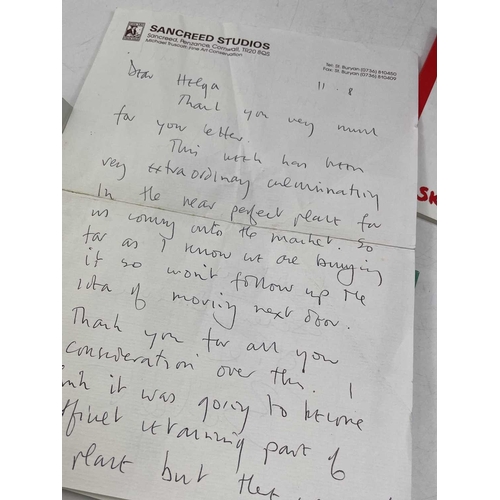 SANCREED STUDIOS
Sancreed, Penzance, Cornwall, TR20 8QS
Michael Truscott, Fine Art Conservation
Tel: St. Buryan (0736) 810850
Fax: St. Buryan (0736) 810409
Dear Helga 11.8
Thank you very much
for your letter.
This week has been
very extraordinary culminating
in the near perfect place for
us coming onto the market. So
far as I know we are buying
it so won't follow up the
idea of moving next door.
Thank you for all you
consideration over this. I
it was going to become
part of
place but
SK